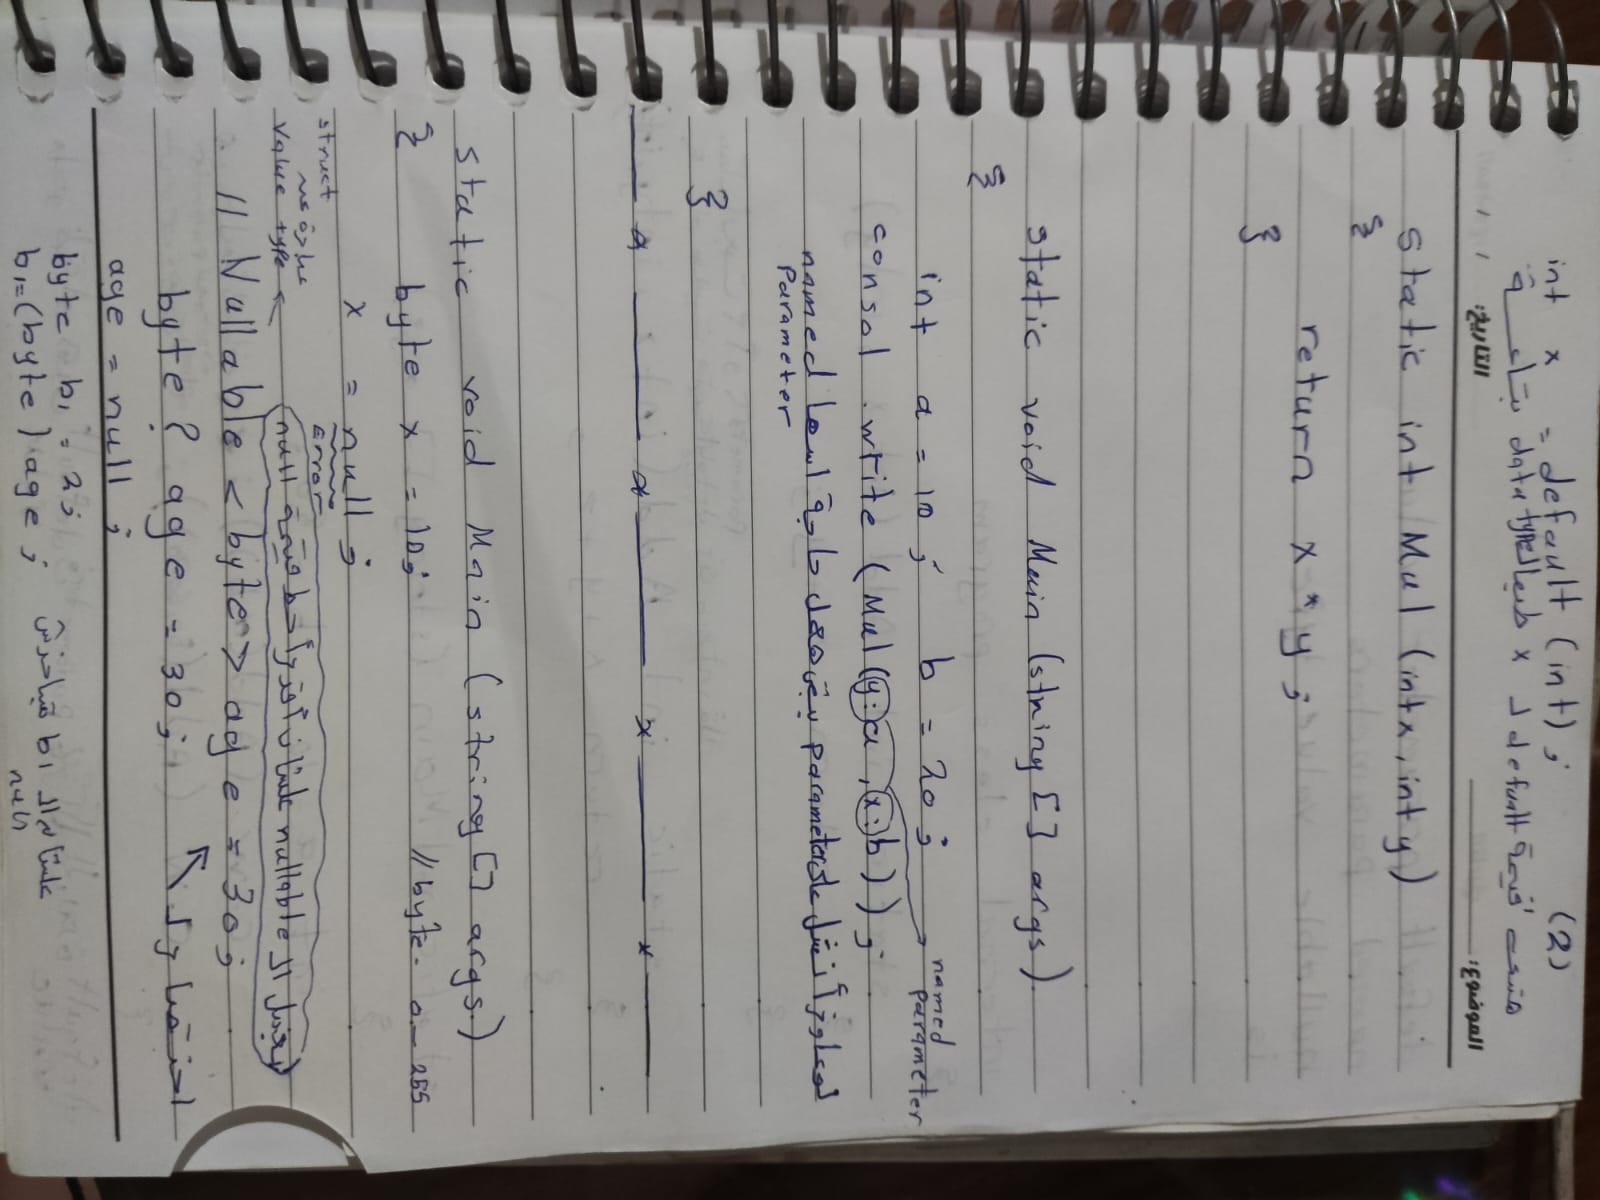 int x = default (int) ; (2)
قيمة default لـ x طبقا لـ data type بتاعة
الموضوع: التاريخ: / /
static int Mul (int x, int y)
{
return x * y ;
}
static void Main (string [] args)
{
int a = 10 ; b = 20 ;
named
parameter
consol .write (Mul (y: a , x: b)) ;
لو عاوز أنقل على parameter يبقى هعمل حاجة اسمها named
Parameter
}
static void Main (string [] args)
{ byte x = 10; // byte 0 - 255
x = null ;
Error
struct
عبارة عن
value type
الـ nullable علشان أقدر أحط قيمة null
// Nullable < byte > age = 30 ;
byte ? age = 30 ; اختصار لـ
age = null ;
byte b1 = 2 ;
b1 = (byte) age ; علشان الـ b1 مبياخدش
null